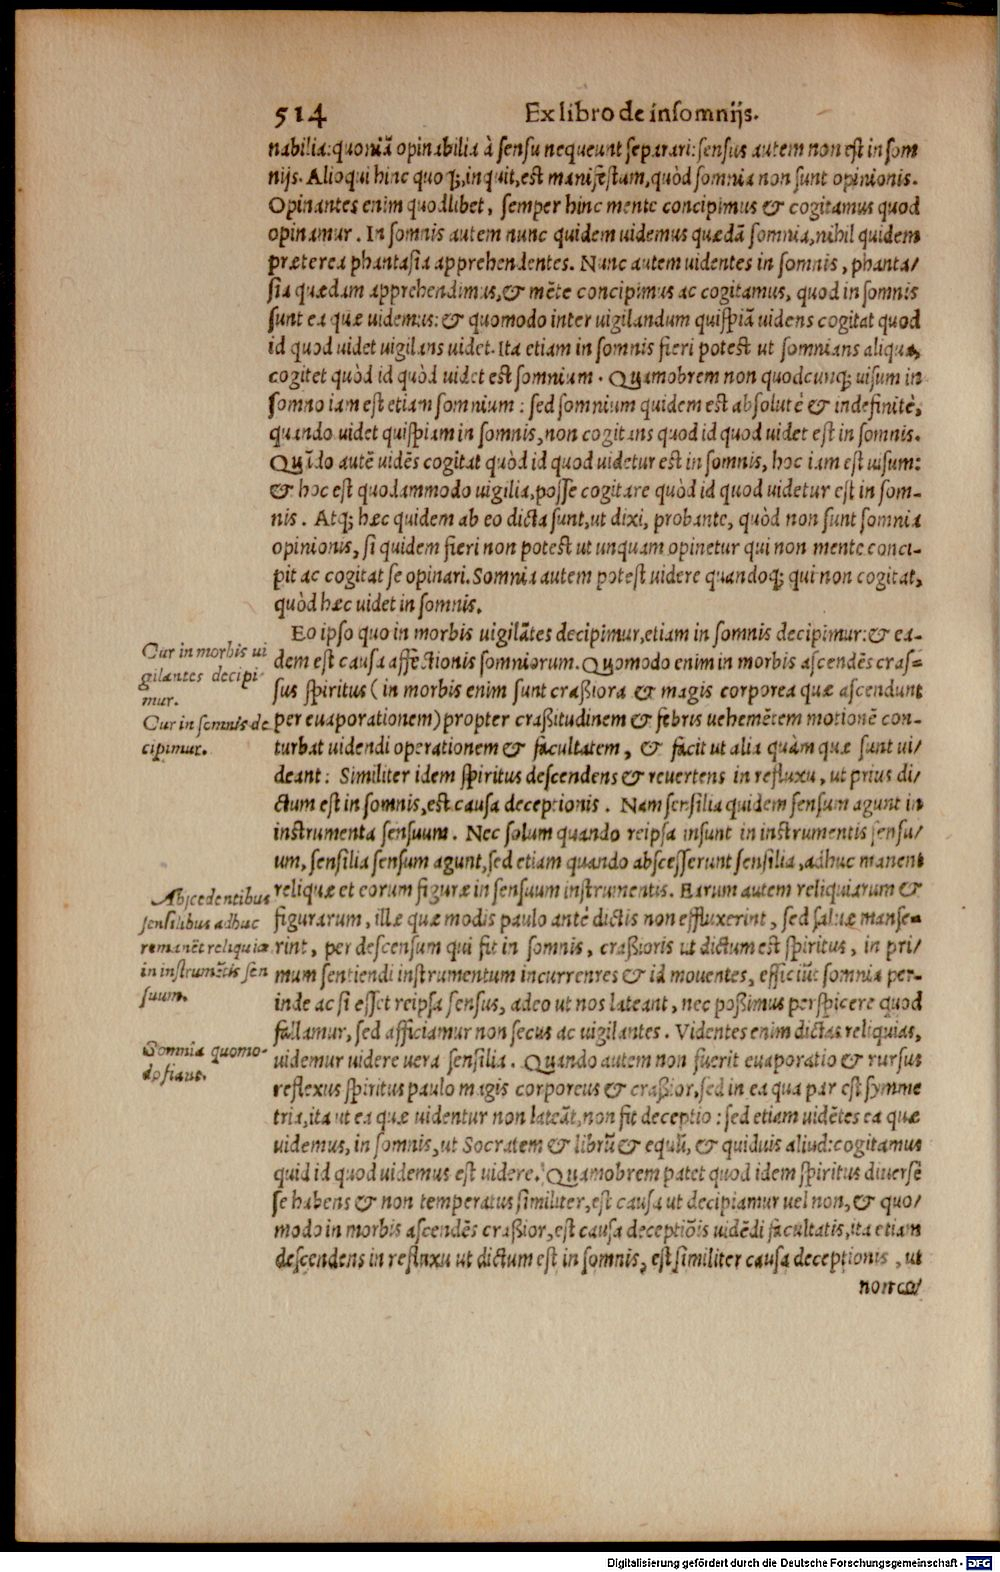 514
Ex libro de insomnijs.
nabilia: quoniã opinabilia à sensu nequeunt separari: sensus autem non est in som
nijs. Alioqui hinc quoq;, inquit, est manifestum, quòd somnia non sunt opinionis.
Opinantes enim quodlibet, semper hinc mente concipimus & cogitamus quod
opinamur. In somnis autem nunc quidem uidemus quædã somnia, nihil quidem
præterea phantasia apprehendentes. Nunc autem uidentes in somnis, phanta/
sia quædam apprehendimus, & mẽte concipimus ac cogitamus, quod in somnis
sunt ea quæ uidemus: & quomodo inter uigilandum quispiã uidens cogitat quod
id quod uidet uigilans uidet. Ita etiam in somnis fieri potest ut somnians aliqua,
cogitet quòd id quòd uidet est somnium. Quamobrem non quodcunq; uisum in
somno iam est etiam somnium: sed somnium quidem est absolutè & indefinitè,
quando uidet quispiam in somnis, non cogitans quod id quod uidet est in somnis.
Quãdo autẽ uidẽs cogitat quòd id quod uidetur est in somnis, hoc iam est uisum:
& hoc est quodammodo uigilia, posse cogitare quòd id quod uidetur est in som-
nis. Atq; hæc quidem ab eo dicta sunt, ut dixi, probante, quòd non sunt somnia
opinionis, si quidem fieri non potest ut unquam opinetur qui non mente conci-
pit ac cogitat se opinari. Somnia autem potest uidere quandoq; qui non cogitat,
quòd hæc uidet in somnis.
Eo ipso quo in morbis uigilãtes decipimur, etiam in somnis decipimur: & ea-
dem est causa affectionis somniorum. Quomodo enim in morbis ascendẽs cras=
sus spiritus (in morbis enim sunt craßiora & magis corporea quæ ascendunt
per euaporationem) propter craßitudinem & febris uehemẽtem motionẽ con-
turbat uidendi operationem & facultatem, & facit ut alia quàm quæ sunt ui/
deant: Similiter idem spiritus descendens & reuertens in refluxu, ut prius di/
ctum est in somnis, est causa deceptionis. Nam sensilia quidem sensum agunt in
instrumenta sensuum. Nec solum quando reipsa insunt in instrumentis sensu/
um, sensilia sensum agunt, sed etiam quando abscesserunt sensilia, adhuc manent
reliquæ et eorum figuræ in sensuum instrumentis. Earum autem reliquiarum &
figurarum, illæ quæ modis paulo antè dictis non effluxerint, sed saluæ manse-
rint, per descensum qui fit in somnis, craßioris ut dictum est spiritus, in pri/
mum sentiendi instrumentum incurrentes & id mouentes, efficiũt somnia per-
inde ac si esset reipsa sensus, adeo ut nos lateant, nec poßimus perspicere quod
fallamur, sed afficiamur non secus ac uigilantes. Videntes enim dictas reliquias,
uidemur uidere uera sensilia. Quando autem non fuerit euaporatio & rursus
reflexus spiritus paulo magis corporeus & craßior, sed in ea qua par est symme
tria, ita ut ea quæ uidentur non lateãt, non fit deceptio: sed etiam uidẽtes ea quæ
uidemus, in somnis, ut Socratem & librũ & equũ, & quiduis aliud: cogitamus
quid id quod uidemus est uidere. Quamobrem patet quod idem spiritus diuersẽ
se habens & non temperatus similiter, est causa ut decipiamur uel non, & quo/
modo in morbis ascendẽs craßior, est causa deceptiõis uidẽdi facultatis, ita etiam
descendens in refluxu ut dictum est in somnis, est similiter causa deceptionis, ut
non co/
Cur in morbis ui
gilantes decipi-
mur.
Cur in somnis de
cipimur.
Abscedentibus
sensilibus adhuc
remanẽt reliquiæ
in instrumẽtis sen
suum.
Somnia quomo-
do fiant.
Digitalisierung gefördert durch die Deutsche Forschungsgemeinschaft - DFG